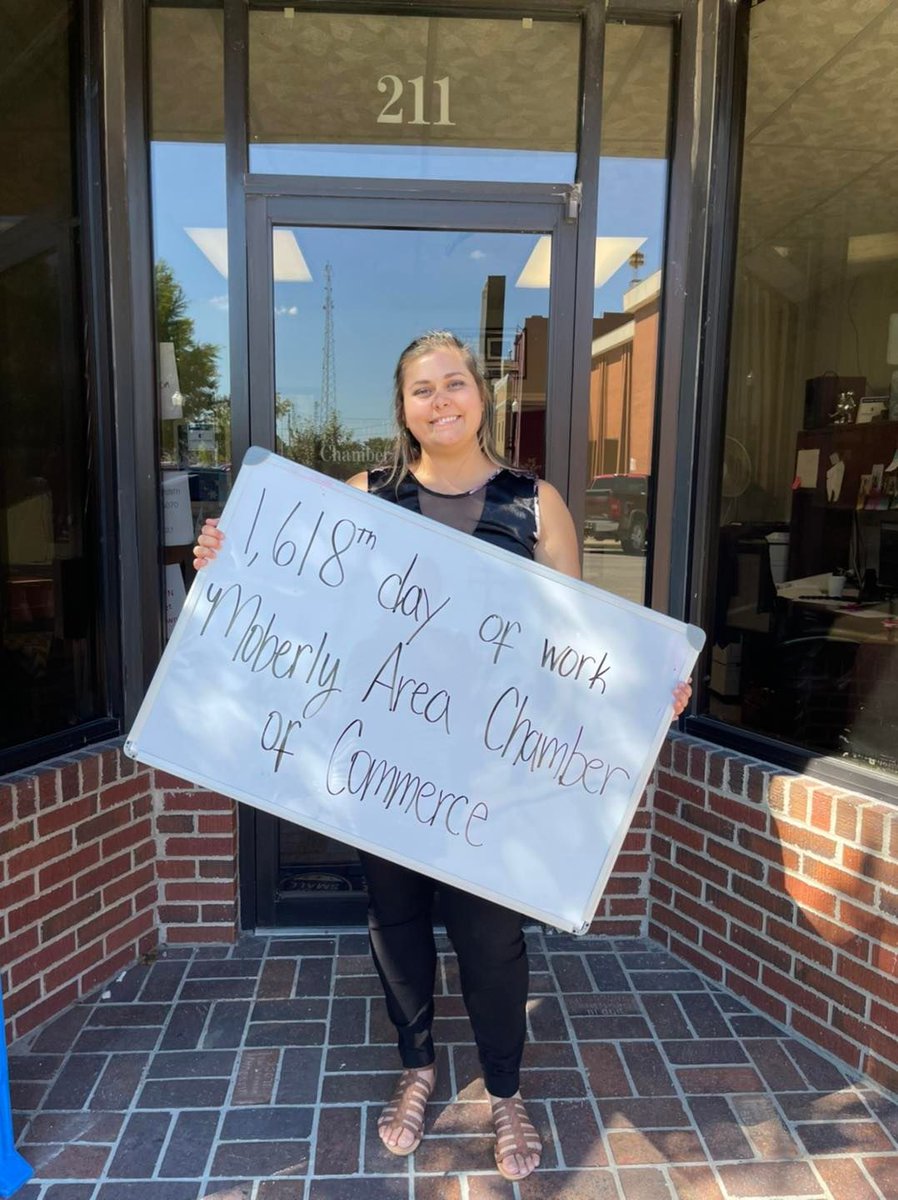 211
Chamber
1,618th day of work
"Moberly Area Chamber
of Commerce
SMALL